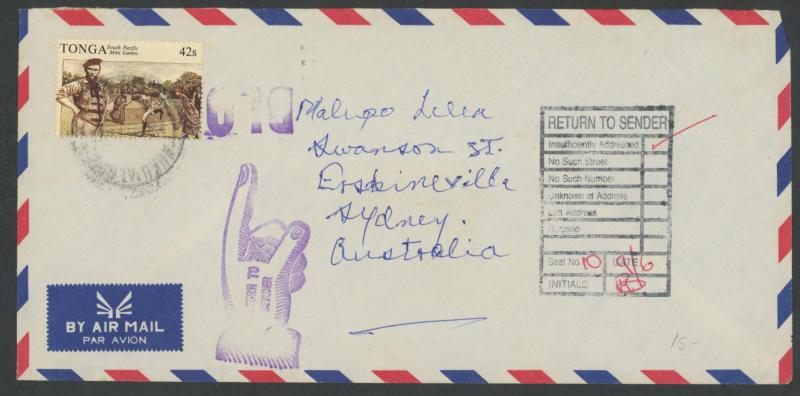 TONGA South Pacific Mini Games 42s
NUKU'ALOFA
DLO
Swanson St.
Erskineville
Sydney.
Australia
RETURN TO SENDER
Insufficiently Addressed
No Such Street
No Such Number
Unknown at Address
Left Address
Refused
Beat No 10 DATE 9/6
INITIALS
RETURN TO
SENDER
BY AIR MAIL
PAR AVION
15-